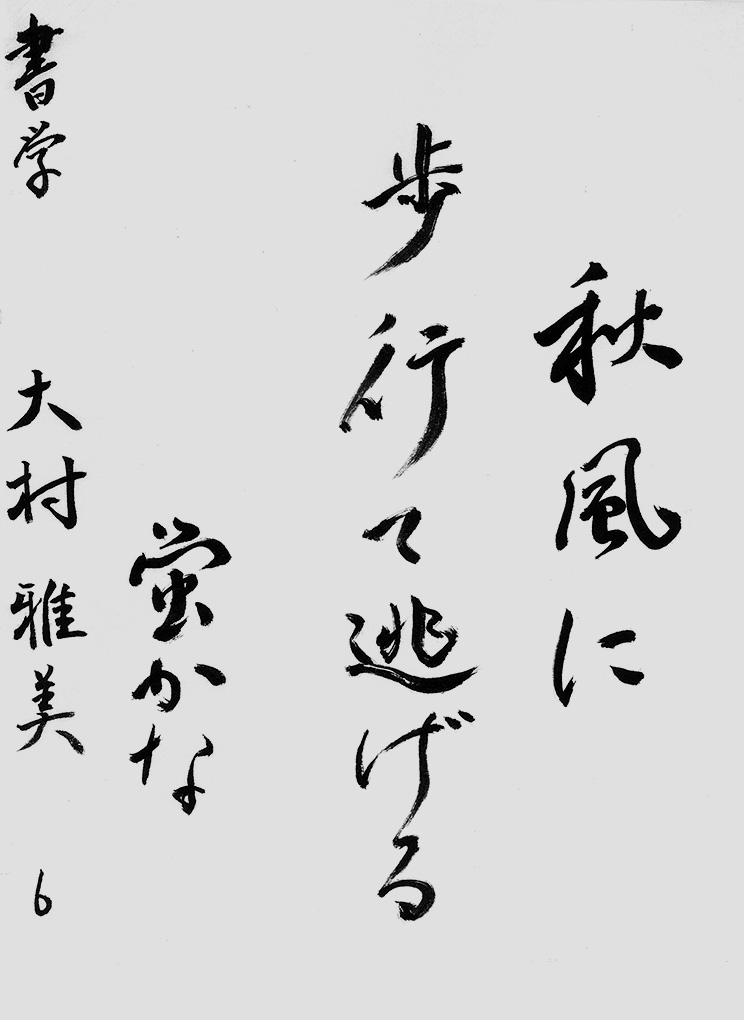 秋風に
歩行て逃げる
蛍かな
書学 大村雅美 6